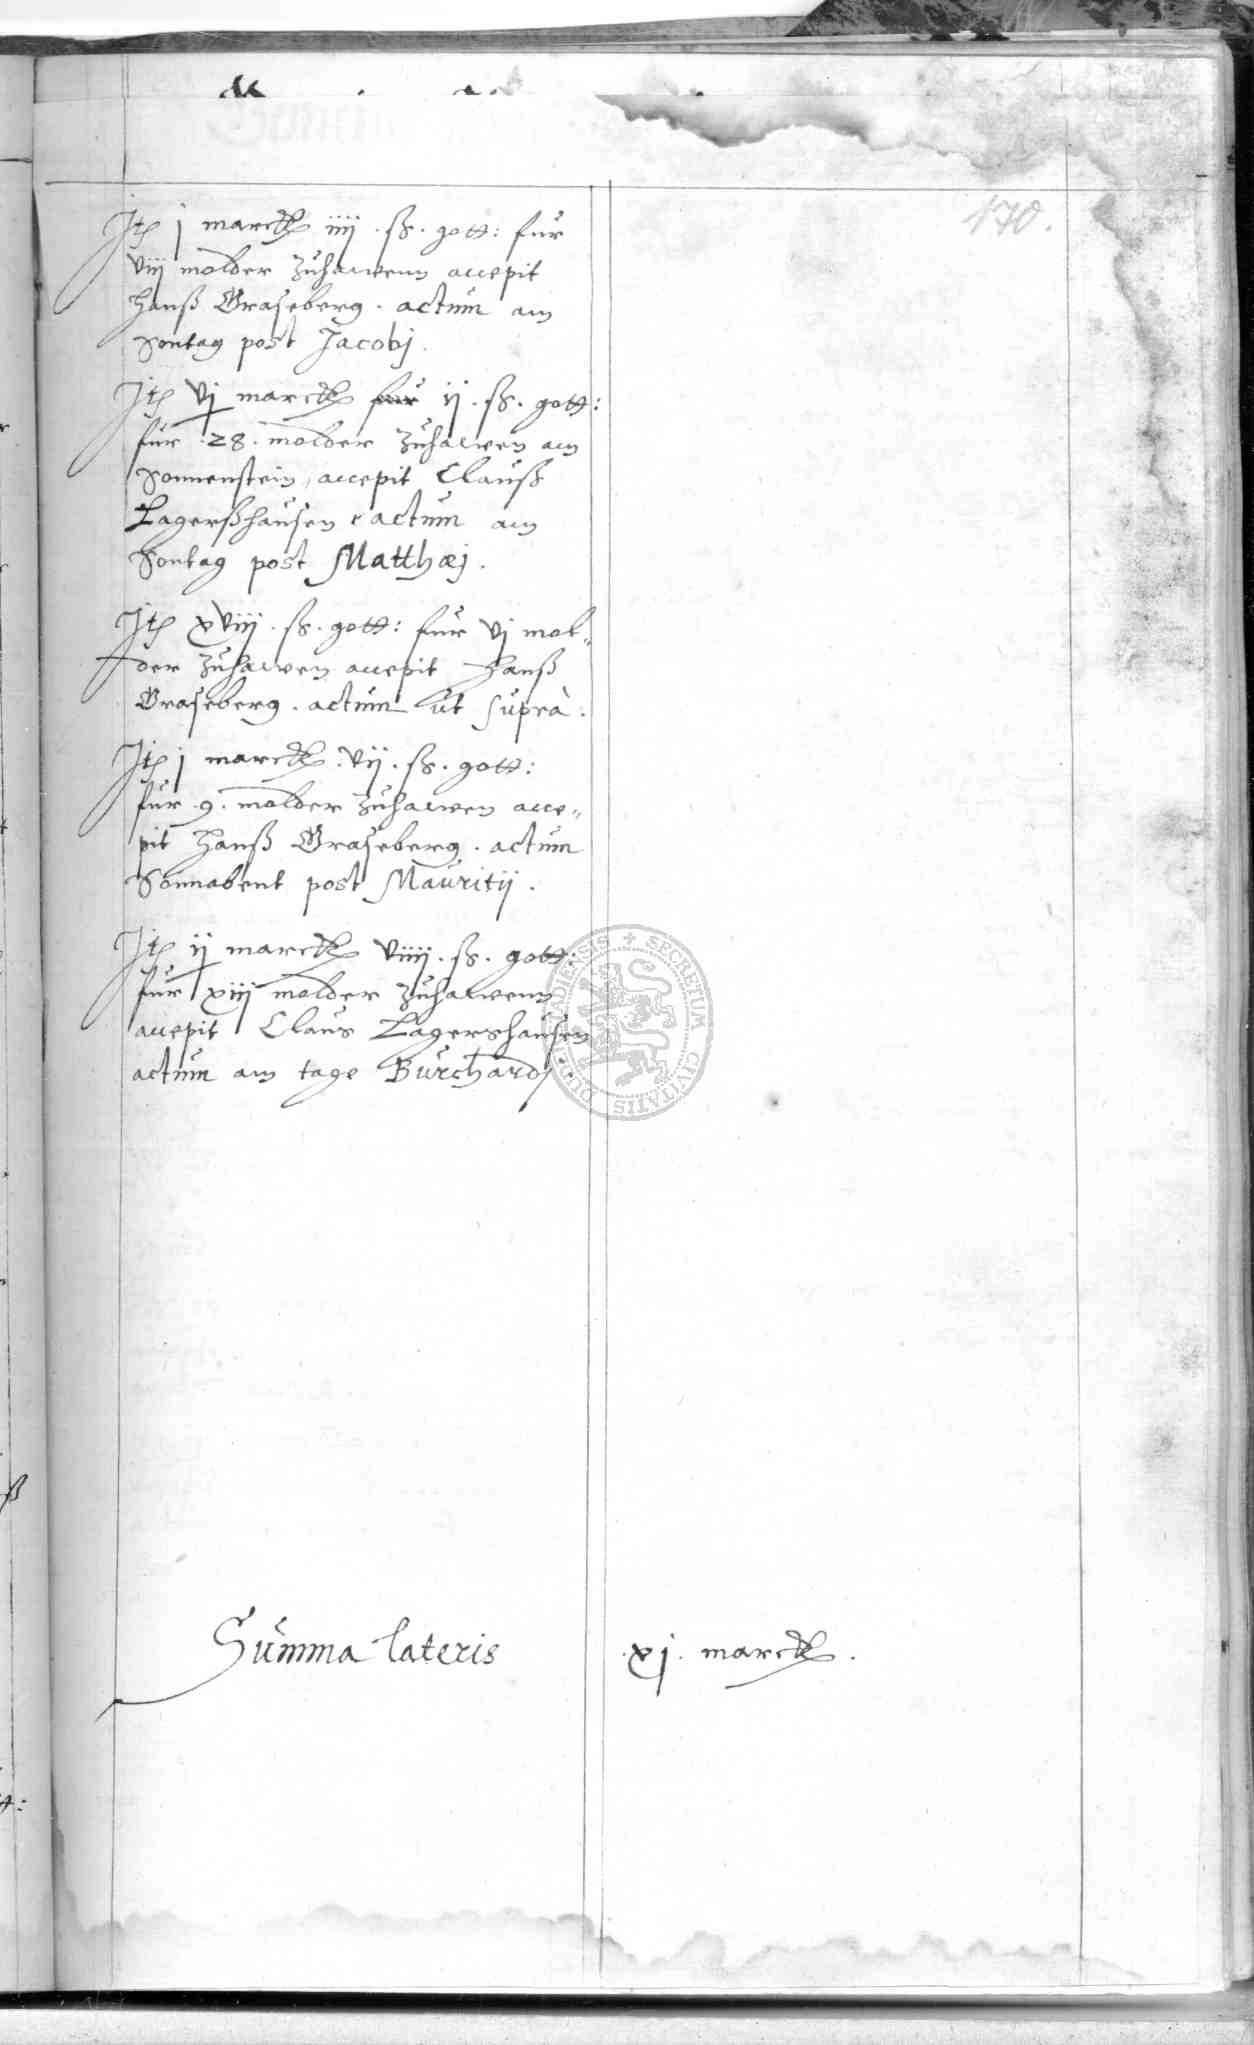 170.
Jtem j marck iiij . ß . gott: fur
viij molder zuhawenn accepit
Hanß Graseberg . actum am
Sontag post Jacobj .
Jtem vj marck fur ij . ß . gott:
fur . 28 . molder zuhawen am
Sonnenstein, accepit Clauß
Lagerßhausen actum am
Sontag post Matthæj .
Jtem xviij . ß . gott: fur vj mol„
der zuhawen accepit Hanß
Graseberg . actum ut suprà .
Jtem j marck . vij . ß . gott:
fur . 9 . molder zuhawen acce„
pit Hanß Graseberg . actum
Sonnabent post Mauritij .
Jtem ij marck viiij . ß . gott:
fur xiij molder zuhawenn
accepit Claus Lagershausen
actum am tage Burchardj .
SECRETUM CIVITATIS
Summa lateris .xj. marck .